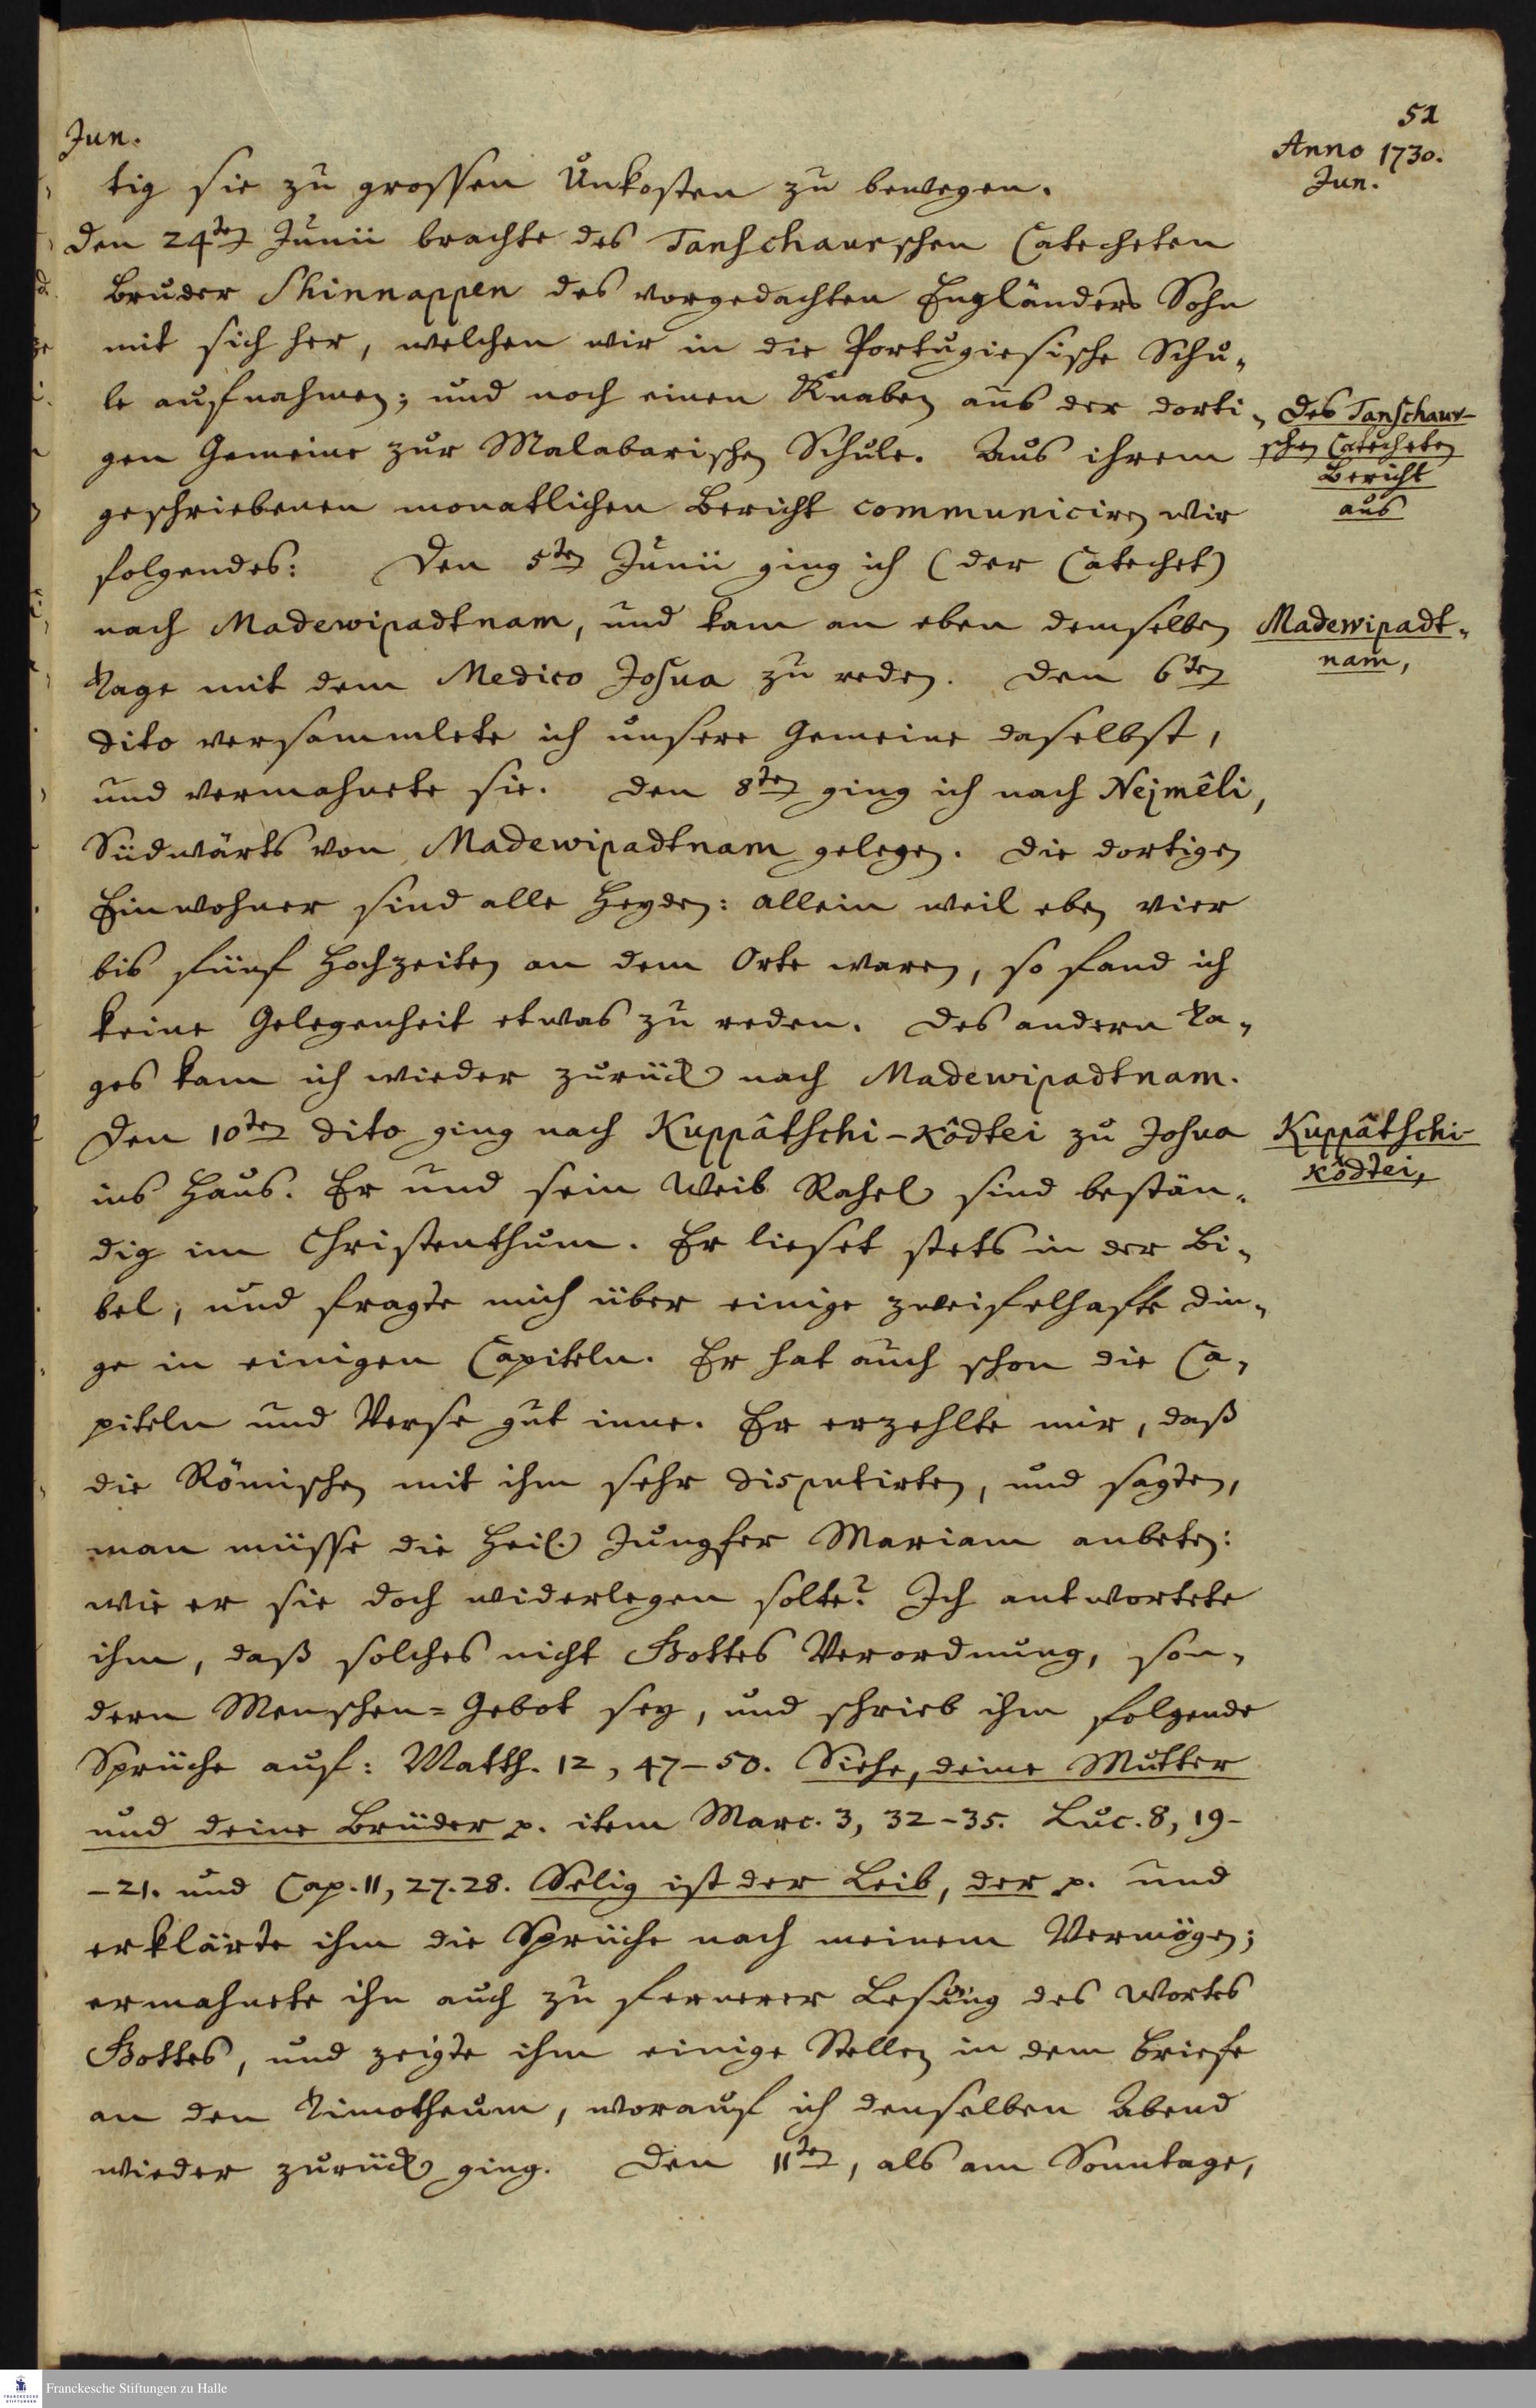 51
Anno 1730.
Jun.
Jun.
tig sie zu grossen Unkosten zu bewegen.
Den 24ten Junii brachte des Tanschaurschen Catecheten
Bruder Shinnappen des vorgedachten Engländers Sohn
mit sich her, welchen wir in die Portugiesische Schu-
le aufnahmen; und noch einen Knaben aus der dorti-
gen Gemeine zur Malabarischen Schule. Aus ihrem
geschriebenen monatlichen Bericht communiciren wir
folgendes: Den 5ten Junii ging ich (der Catechet)
nach Madewipadtnam, und kam an eben demselben
Tage mit dem Medico Josua zu reden. Den 6ten
dito versammlete ich unsere Gemeine daselbst,
und vermahnete sie. Den 8ten ging ich nach Nejmêli,
Südwärts von Madewipadtnam gelegen. Die dortigen
Einwohner sind alle Heyden: allein weil eben vier
bis fünf Hochzeiten an dem Orte waren, so fand ich
keine Gelegenheit etwas zu reden. Des andern Ta-
ges kam ich wieder zurück nach Madewipadtnam.
Den 10ten dito ging nach Kuppâtschi-kôdtei zu Josua
ins Haus. Er und sein Weib Rahel sind bestän-
dig im Christenthum. Er lieset stets in der Bi-
bel, und fragte mich über einige zweifelhafte Din-
ge in einigen Capiteln. Er hat auch schon die Ca-
piteln und Verse gut inne. Er erzehlte mir, daß
die Römischen mit ihm sehr disputirten, und sagten,
man müsse die Heil. Jungfer Mariam anbeten:
wie er sie doch widerlegen solte? Ich antwortete
ihm, daß solches nicht Gottes Verordnung, son-
dern Menschen=Gebot sey, und schrieb ihm folgende
Sprüche auf: Matth. 12, 47-50. Siehe, deine Mutter
und deine Brüder p. item Marc. 3, 32-35. Luc. 8, 19-
-21. und Cap. 11, 27.28. Selig ist der Leib, der p. und
erklärte ihm die Sprüche nach meinem Vermögen;
ermahnete ihn auch zu fernerer Lesung des Wortes
Gottes, und zeigte ihm einige Stellen in dem Briefe
an den Timotheum, worauf ich denselben Abend
wieder zurück ging. Den 11ten, als am Sonntage,
Des Tanschaur-
schen Catecheten
Bericht
aus
Madewipadt-
nam,
Kuppâtschi-
kôdtei,
Franckesche Stiftungen zu Halle